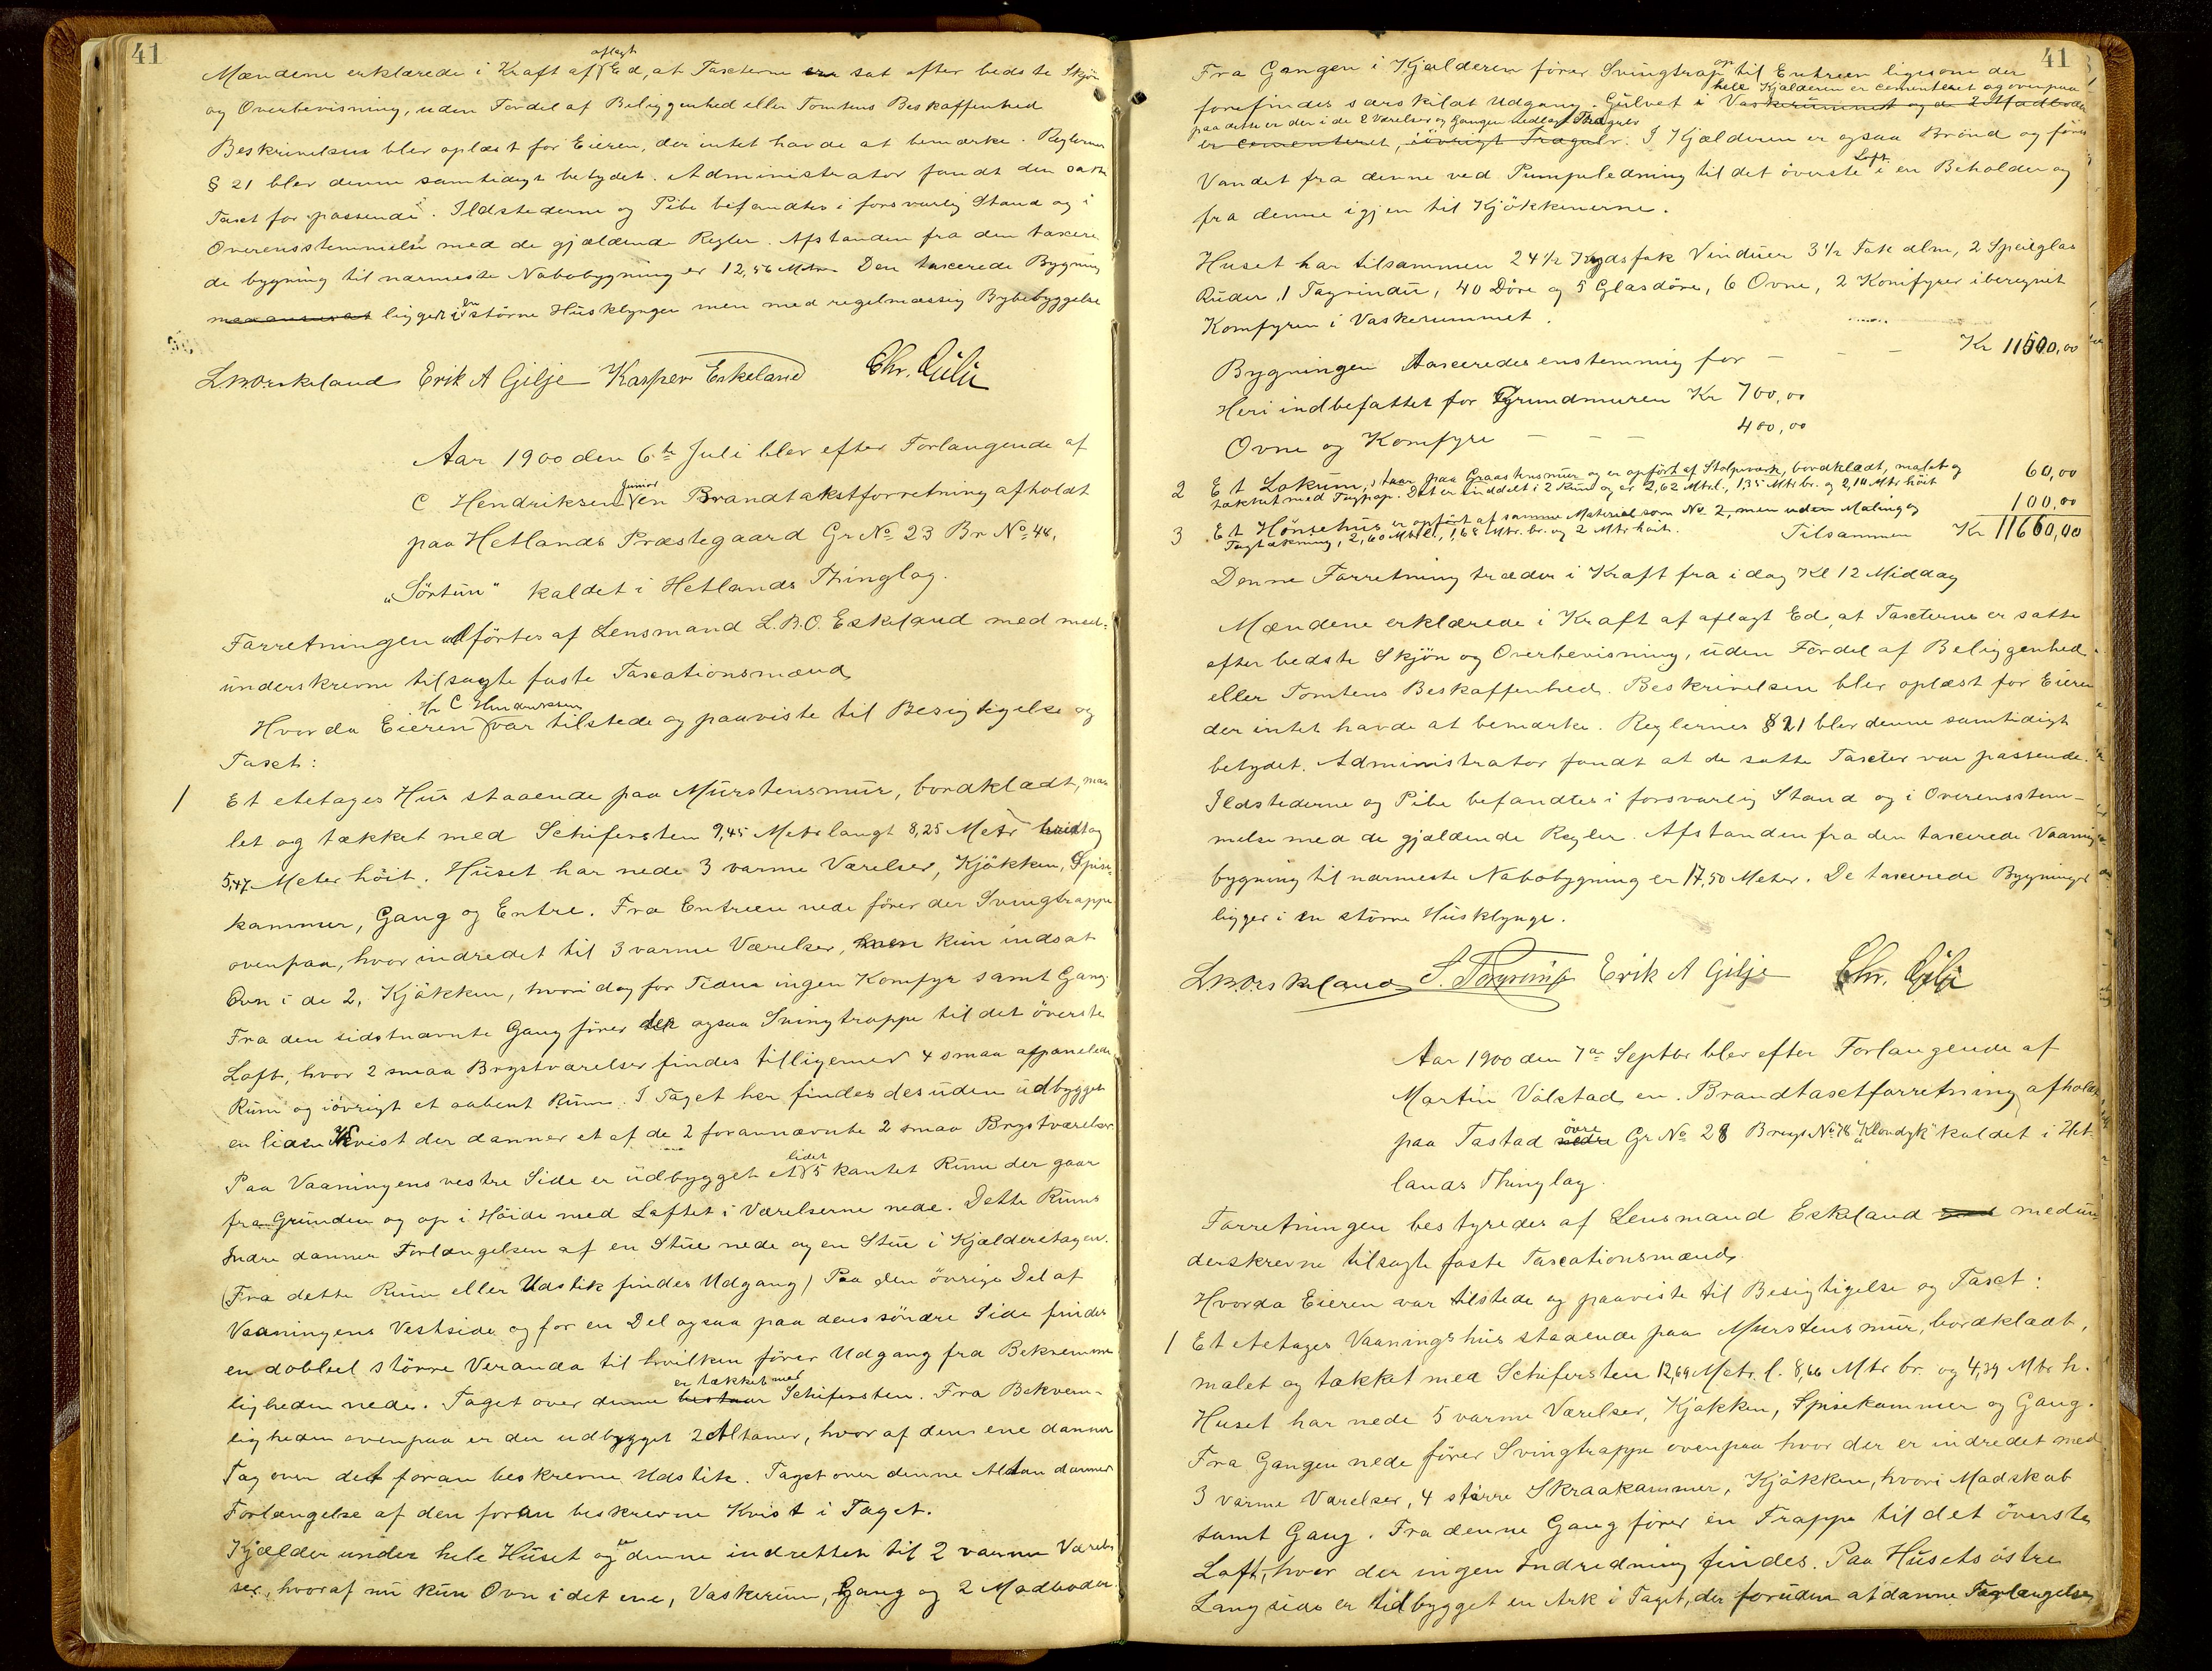 41
Mændene erklærede i Kraft af aflagt Ed, at Taxterne er sat efter bedste Skjön
og Overbevisning, uden Fordel af Beliggenhed eller Tomtens Beskaffenhed
Beskrivelsen blev oplæst for Eieren, der intet havde at bemærke. Reglernes
§ 21 blev denne samtidigt betydet. Administrator fandt den satte
Taxt for passende. Ildstederne og Pibe befandtes i forsvarlig Stand og i
Overensstemmelse med de gjældende Regler. Afstanden fra den taxere
de bygning til nærmeste Nabobygning er 12,56 Metr. Den taxerede Bygning
ligger i en större Husklynge men med regelmæssig Bybebyggelse
L.B.O. Eskeland Erik A Gilje Kasper Eskeland Chr. Gilje
Aar 1900 den 6te Juli blev efter Forlangende af
C Hendriksen junior en Brandtakstforretning afholdt
paa Hetlands Præstegaard Gr No 23 Br No 48,
„Sörtun" kaldet i Hetlands Thinglag.
Forretningen udførtes af Lensmand L.B.O. Eskeland med med-
underskrevne tilsagte faste Taxationsmænd
Hvorda Eieren Hr C Hendriksen var tilstede og paaviste til Besigtigelse og
Taxt:
1 Et etetages Hus staaende paa Murstensmur, bordklædt, ma
let og tækket med Schifersten 9,45 Metr langt 8,25 Metr bredt og
5,47 Meter höit. Huset har nede 3 varme Værelser, Kjökken, Spise
kammer, Gang og Entre. Fra Entreen nede fører der Svingtrappe
ovenpaa, hvor indredet til 3 varme Værelser, men kun indsat
Ovn i de 2, Kjökken, hvori dog for Tiden ingen Komfyr samt Gang.
Fra den sidstnævnte Gang fører der ogsaa Svingtrappe til det överste
Loft, hvor 2 smaa Brystværelser findes tilligemed 4 smaa afpanelede
Rum og iövrigt et aabent Rum. I Taget her findes desuden udbygget
en liden Kvist der danner et af de 2 forannævnte 2 smaa Brystværelser
Paa Vaaningens vestre Side er udbygget et lidet 5 kantet Rum der gaar
fra Grunden og op i Höide med Loftet i Værelserne nede. Dette Rums
Indre danner Forlængelsen af en Stue nede og en Stue i Kjælderetagen.
(Fra dette Rum eller Udstik findes Udgang) Paa den övrige Del af
Vaaningens Vestside og for en Del ogsaa paa dens söndre Side findes
en dobbel större Veranda til hvilken fører Udgang fra Bekvemme
ligheden nede. Taget over denne bestaar er tækket med Schifersten. Fra Bekvem-
ligheden ovenpaa er der udbygget 2 Altaner, hvoraf den ene danner
Tag over det foran beskrevne Udstik. Taget over denne Altan danner
Forlængelse af den foran beskrevne Kvist i Taget.
Kjælder under hele Huset og er denne indrettet til 2 varme Værel
ser, hvoraf nu kun Ovn i det ene, Vaskerum, Gang og 2 Madboder
41
Fra Gangen i Kjælderen fører Svingtrap op til Entreen ligesom der
hele Kjælderen er cementeret og ovenpaa
forefindes særskilat Udgang. Gulvet i Vaskerummet og de 2 Madboder
paa dette er der i de 2 Værelser og Gangen nedlagt Trægulv
er cementeret, iövrigt Trægulv. I Kjælderen er ogsaa Brönd og føres
Vandet fra denne ved Pumpeledning til det överste Loft i en Beholder og
fra denne igjen til Kjökkenerne.
Huset har tilsammen 24 1/2 Krydsfak Vinduer 3 1/2 Fak alm, 2 Speilglas
Ruder, 1 Tagvindu, 40 Döre og 5 Glasdöre, 6 Ovne, 2 Komfyrer iberegnet
Komfyren i Vaskerummet.
Bygningen taxeredes enstemmig for - - - Kr 11500,00
Heri indbefattet for Grundmuren Kr 700,00
Ovne og Komfyre - - - 400,00
2 Et Lokum, staar paa Graastensmur og er opfört af Stolpeværk, bordklædt, malet og 60,00
tækket med Tagpap. Det er inddelt i 2 Rum og er 2,62 Mtr l., 1,35 Mtr br. og 2,14 Mtr höit
3 Et Hönsehus er opfört af samme Material som No 2, men uden Maling og 100,00
Tagtækning, 2,60 Mtr l, 1,68 Mtr. br. og 2 Mtr höit. Tilsammen Kr 11660,00
Denne Forretning træder i Kraft fra idag Kl 12 Middag
Mændene erklærede i Kraft af aflagt Ed, at Taxterne er satte
efter bedste Skjön og Overbevisning, uden Fordel af Beliggenhed
eller Tomtens Beskaffenhed. Beskrivelsen blev oplæst for Eieren
der intet havde at bemærke. Reglernes § 21 blev denne samtidigt
betydet. Administrator fandt at de satte Taxter var passende.
Ildstederne og Pibe befandtes i forsvarlig Stand og i Overensstem-
melse med de gjældende Regler. Afstanden fra den taxerede Vaanings
bygning til nærmeste Nabobygning er 17,50 Meter. De taxerede Bygninger
ligger i en större Husklynge.
L.B.O. Eskeland Erik A Gilje Chr. Gilje
Aar 1900 den 7de Septbr blev efter Forlangende af
Martin Válstad en Brandtaxtforretning afholdt
paa Tastad nedre övre Gr No 28 Brugs No 78 „Klondyk" kaldet i Het
lands Thinglag.
Forretningen bestyredes af Lensmand Eskeland medun
derskrevne tilsagte faste Taxationsmænd
Hvorda Eieren var tilstede og paaviste til Besigtigelse og Taxt:
1 Et etetages Vaaningshus staaende paa Murstensmur, bordklædt,
malet og tækket med Schifersten 12,69 Metr. l. 8,66 Mtr br. og 4,39 Mtr h.
Huset har nede 5 varme Værelser, Kjökken, Spisekammer og Gang.
Fra Gangen nede fører Svingtrappe ovenpaa hvor der er indredet med
3 varme Værelser, 4 större Skraakammer, Kjökken, hvori Madskab
samt Gang. Fra denne Gang fører en Trappe til det överste
Loft, hvor der ingen Indredning findes. Paa Husets östre
Langside er tilbygget en Ark i Taget, der foruden at danne Forlængelse